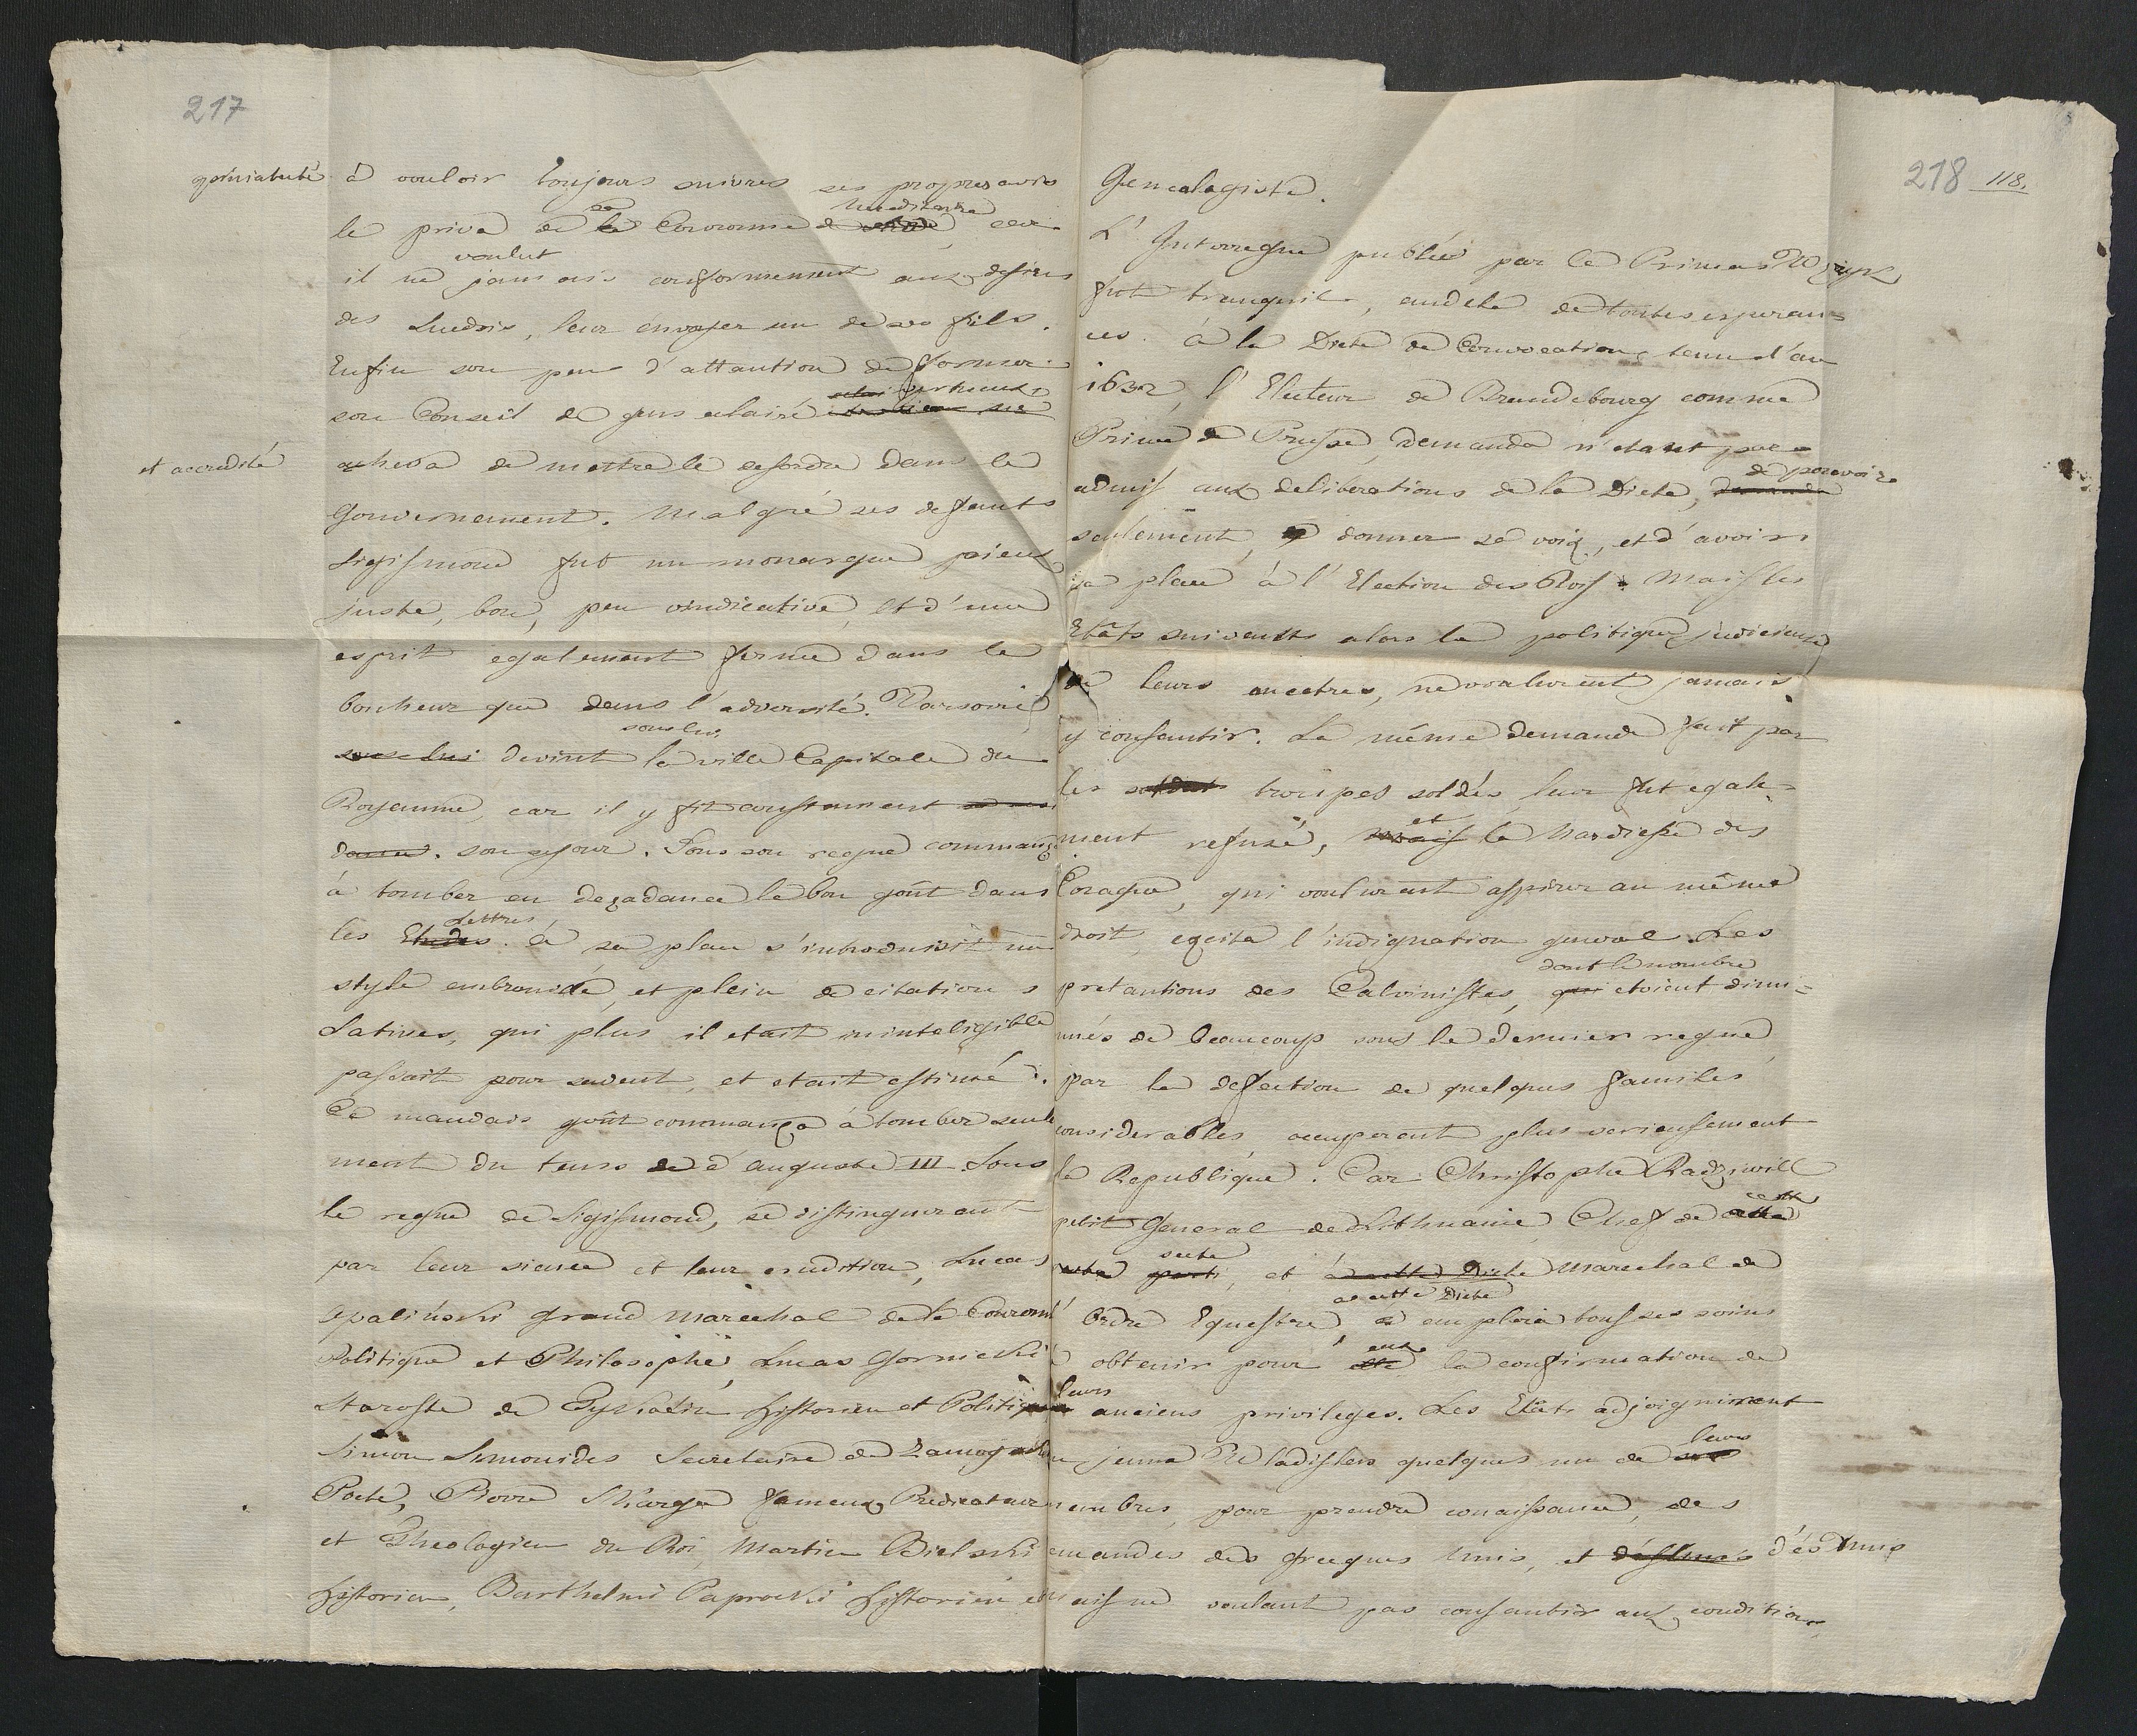 217
opiniatreté à vouloir toujours suivres ses propres avis
sa hereditaire
le priva de la Couronne de car
voulut
il ne jamais conformement aux desires
des Suedois, leur envoyer un de ses fils.
Enfin son peu d'attantion de former
vertueux
son Conseil de gens eclairé
et accredité
acheva de mettre le desordre dans le
Gouvernement. Malgré ses defauts
Sigismond fut un monarque pieux
juste, bon, peu vindicative, et d'une
esprit egalement ferme dans le
bonheur que dans l'adversité. Varsovie
sous lui
sous lui devint la ville Capitale du
Royaume, car il y fit constament
son sejour. Sous son regne commança
à tomber en decadance le bon goût dans
Lettres
les Etudes. à sa place s'introduisit un
style embrouidé, et plein de citations
Latines, qui plus il etait inintelligible
passait pour savent, et etait estimé.
Ce mauvais goût commança à tomber seule
ment du tems de d'auguste III. Sous
le regne de Sigismond, se distinguerant
par leur sience et leur erudition, Lucas
Opaliński grand Marechal de la Couronne
Politique et Philosophe, Lucas Gornicki
Staroste de Tykocin historien et Politique
Simon Simonides Secretaire de Zamoyski
Poete, Pierre Skarga fameux Predicateur
et Theologien du Roi, Martin Bielski
historien, Barthelmi Paprocki historien et
218 118.
Genealogiste.
L'Interregne publiée par le Primas Węzyk
fut tranquil, audela de toutes esperan=
ces. à la Diete de Convocation, tenu l'an
1632, l'Electeur de Brandebourg comme
Prince de Prusse, demanda n'etant pas
de pouvoir
admis aux deliberations de la Diete, demanda
seulement, donner sa voix, et d'avoir
sa place à l'Election des Rois. Mais les
Etâts suivants alors la politique judicieuse
de leurs ancetres, ne voulurent jamais
y consantir. La même demande fait par
les soldats troupes soldés, leur fut egale=
et
ment refusé, mais la hardiesse des
Cosaque, qui voulurent aspirer au même
droit, excita l'indignation general. Les
dont le nombre
pretantions des Calvinistes, qui etoient dimi=
nués de beaucoup sous le dernier regne
par la defection de quelques familes
considerables, occuperent plus serieusement
la Republique. Car Christophe Radziwill
cette
petit General de Lithuanie, Chef de cette
secte
secte parti, et à cette Diete Marechal de
à cette Diete
l'Ordre Equestre, emploia tous ses soins
eux
à obtenir pour la confirmation de
leurs
anciens privileges. Les Etâts adjoignirent
leurs
au jeune Wladislas quelques un de ses
membres, pour prendre conaissance, des
demandes des grecques Unis, et désUnis
mais ne voulant pas consantir aux condition